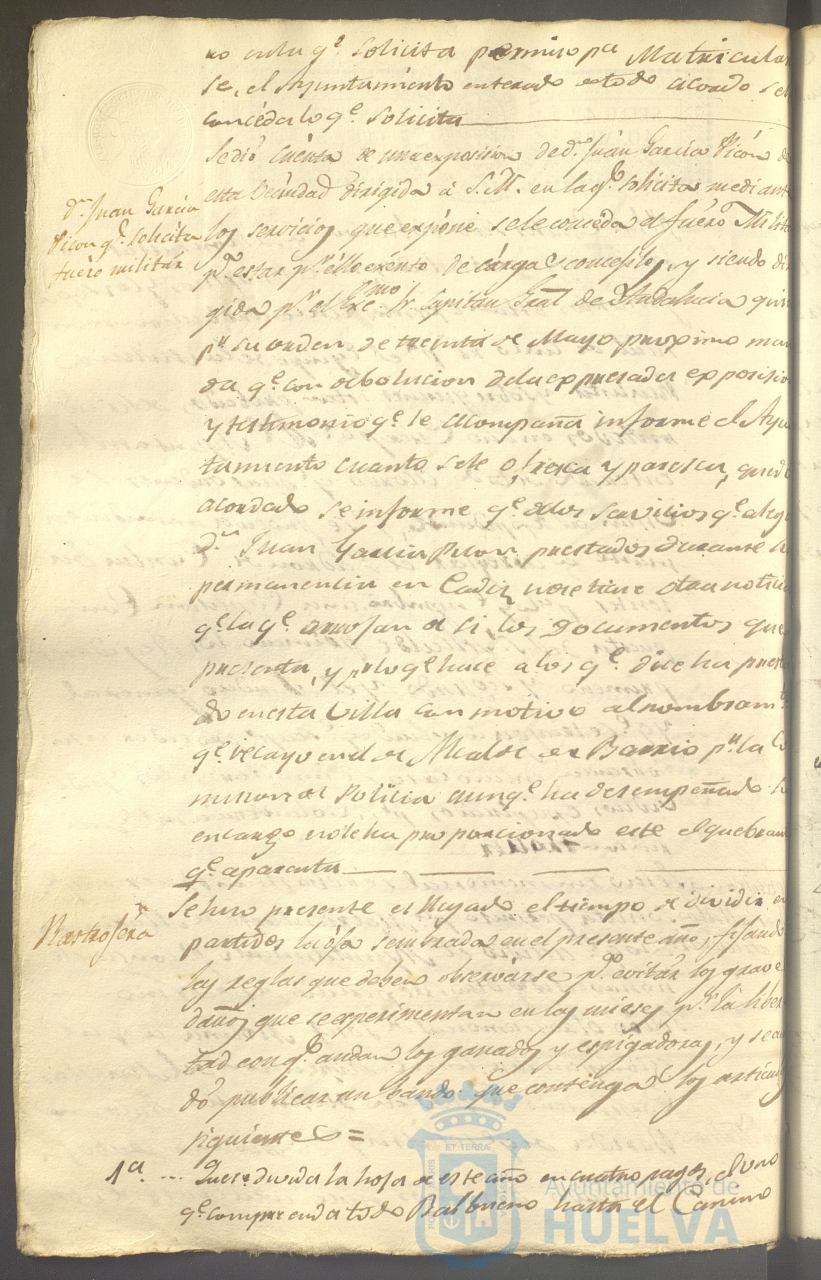 no en la q.e solicita permiso p.a Matricular
se, el Ayuntamiento enterado de todo acordo se le
conceda lo q.e solicita
Se dió cuenta de una exposicion de d.n Juan Garcia Picón de
esta Vecindad dirigida á S.M. en la q.e solicita mediante
los servicios que expone se le conceda el fuero Milita
p.a estar p.r ello exento de cargas concejiles, y siendo diri
gida p.r el Exc.mo Sr Capitan Gral de Andalucia quien
p.r su orden de treinta de Mayo proximo man
da q.e con debolucion de la expresada exposicion
y testimonio q.e le acompaña informe el Ayun
tamiento cuanto se le ofresca y paresca, quedó
acordado se informe q.e de los servicios q.e alega
d.n Juan Garcia Picon prestados durante su
permanencia en Cadiz no se tiene otra noticia
q.e la q.e arrojan de si los documentos que
presenta, y p.r lo q.e hace a los q.e dice ha presta
do en esta Villa con motivo al nombram.to
q.e recayo en el de Alcalde de Barrio p.r la Co
mision de Policia aunq.e ha desempeñado su
encargo no le ha proporcionado este el quebranto
q.e aparenta
d.n Juan Garcia
Picon q.e solicita
fuero militar
Se hizo presente es llegado el tiempo de dividir en
partidos la oja sembrada en el presente año, fijando
las reglas que deben observarse p.a evitar los graves
daños que se experimentan en las mieses p.r la liber
tad con q.e andan los ganados y espigadoras, y se acor
dó publicar un bando que contenga los articulos
siguientes =
Rastrojera
1.a ... Que se divida la hoja de este año en cuatro pagos, el uno
q.e comprenda todo Balbueno hasta el Camino
Ayuntamiento de
HUELVA